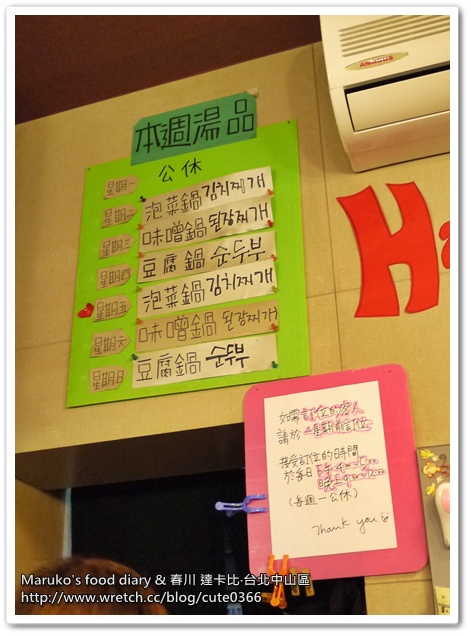 本週湯品
星期一 公休
星期二 泡菜鍋 김치찌개
星期三 味噌鍋 된장찌개
星期四 豆腐鍋 순두부
星期五 泡菜鍋 김치찌개
星期六 味噌鍋 된장찌개
星期日 豆腐鍋 순두부
Ha
如需訂位的客人
請於一星期前訂位
接受訂位的時間
於每日下午
晚上
(每週一公休)
Thank you
Maruko's food diary & 春川 達卡比‧台北中山區
http://www.wretch.cc/blog/cute0366